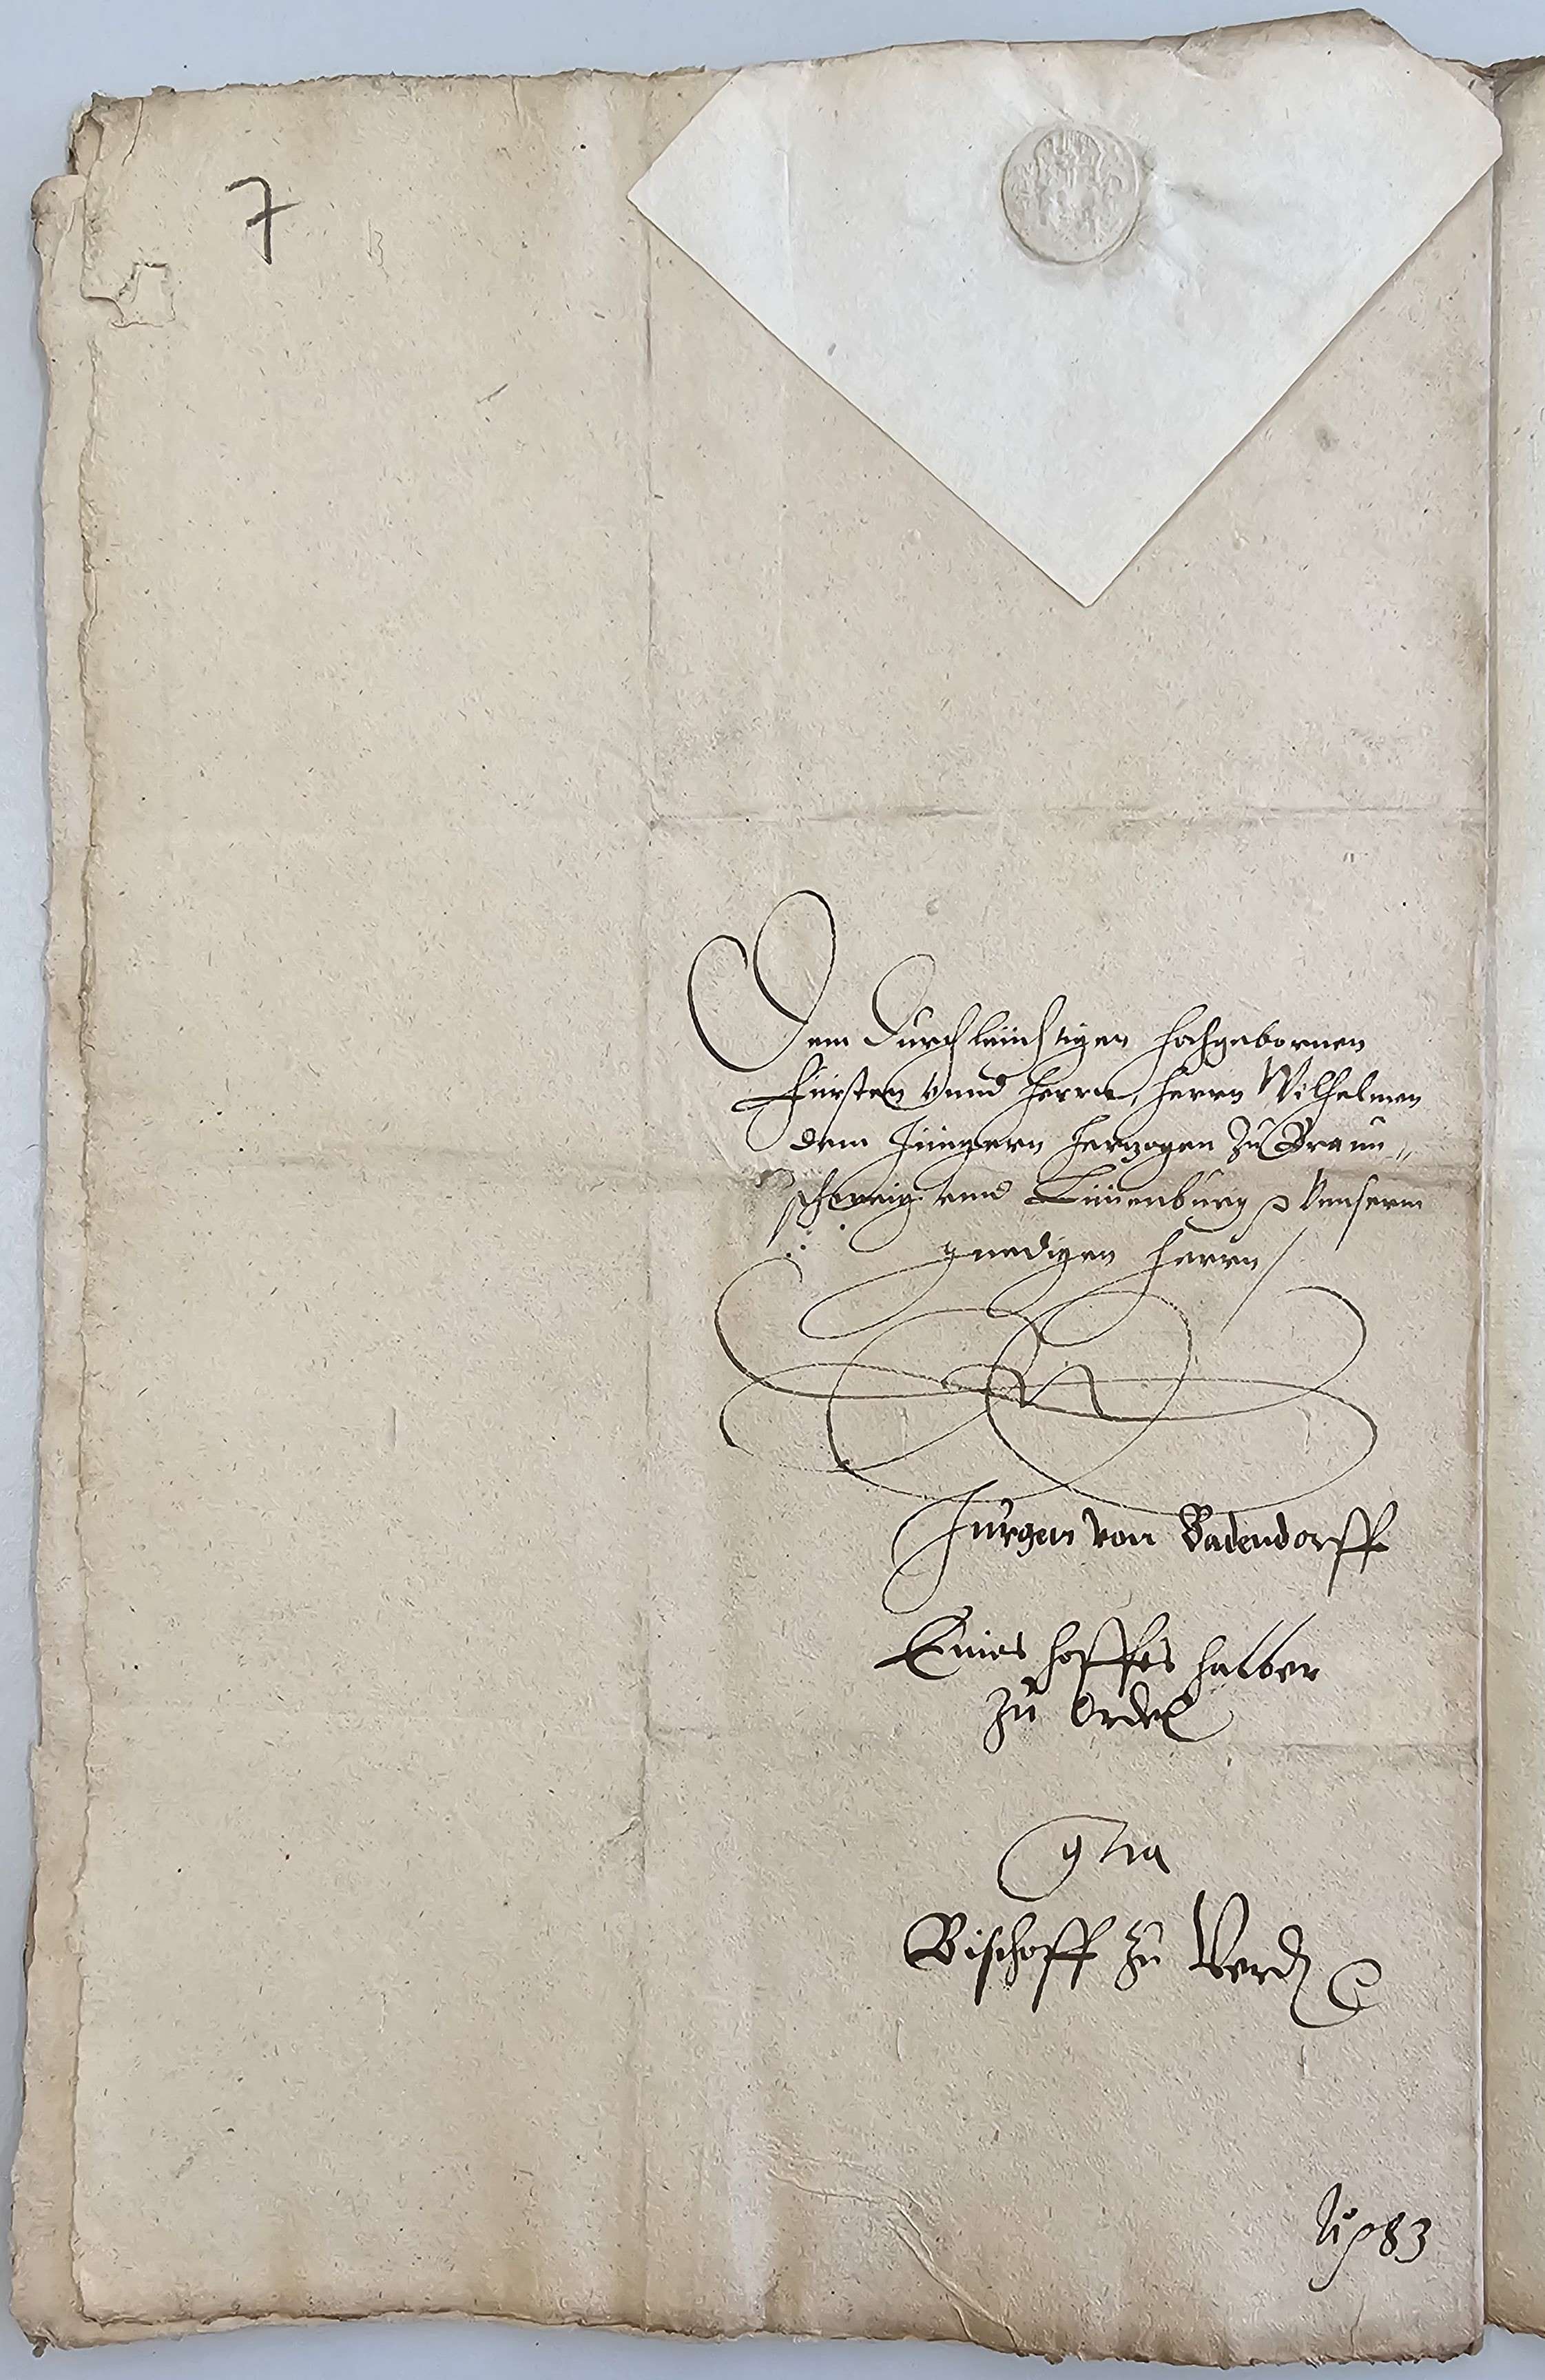 7
Dem Durchleuchtigen hochgebornen
Fürsten vnnd herrn, herrn Wilhelmen
dem Jüngern hertzogen zu Braun„
schweig vnd Lünenburg p Vnnserm
gnedigen herrn /
Jurgen von Badendorff
Eines hoffes halber
zu Ordel
Bischoff zu Verd
83